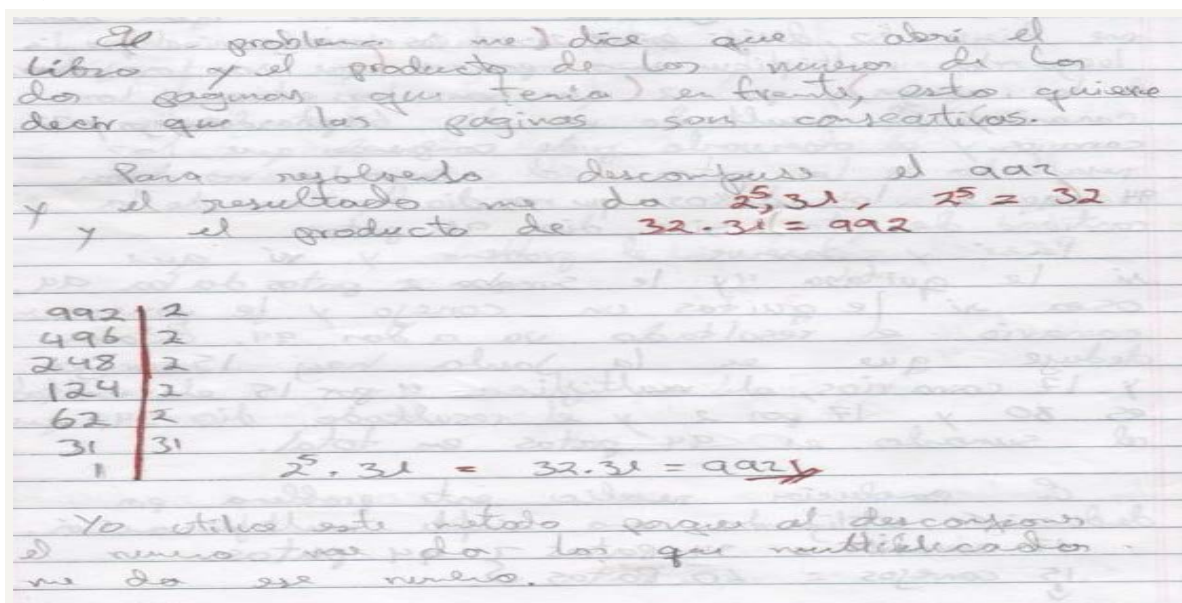 El problema me dice que abri el
libro y el producto de los numeros de las
dos paginas que tenia en frente, esto quiere
decir que las paginas son consecutivas.
Para resolverlo descompuse el 992
y el resultado me da 2⁵, 31, 2⁵ = 32
y el producto de 32 . 31 = 992
992 | 2
496 | 2
248 | 2
124 | 2
62 | 2
31 | 31
1 |
2⁵ . 31 = 32 . 31 = 992
Yo utilice este metodo porque al
el numero me da los que multiplicados
me da ese numero.